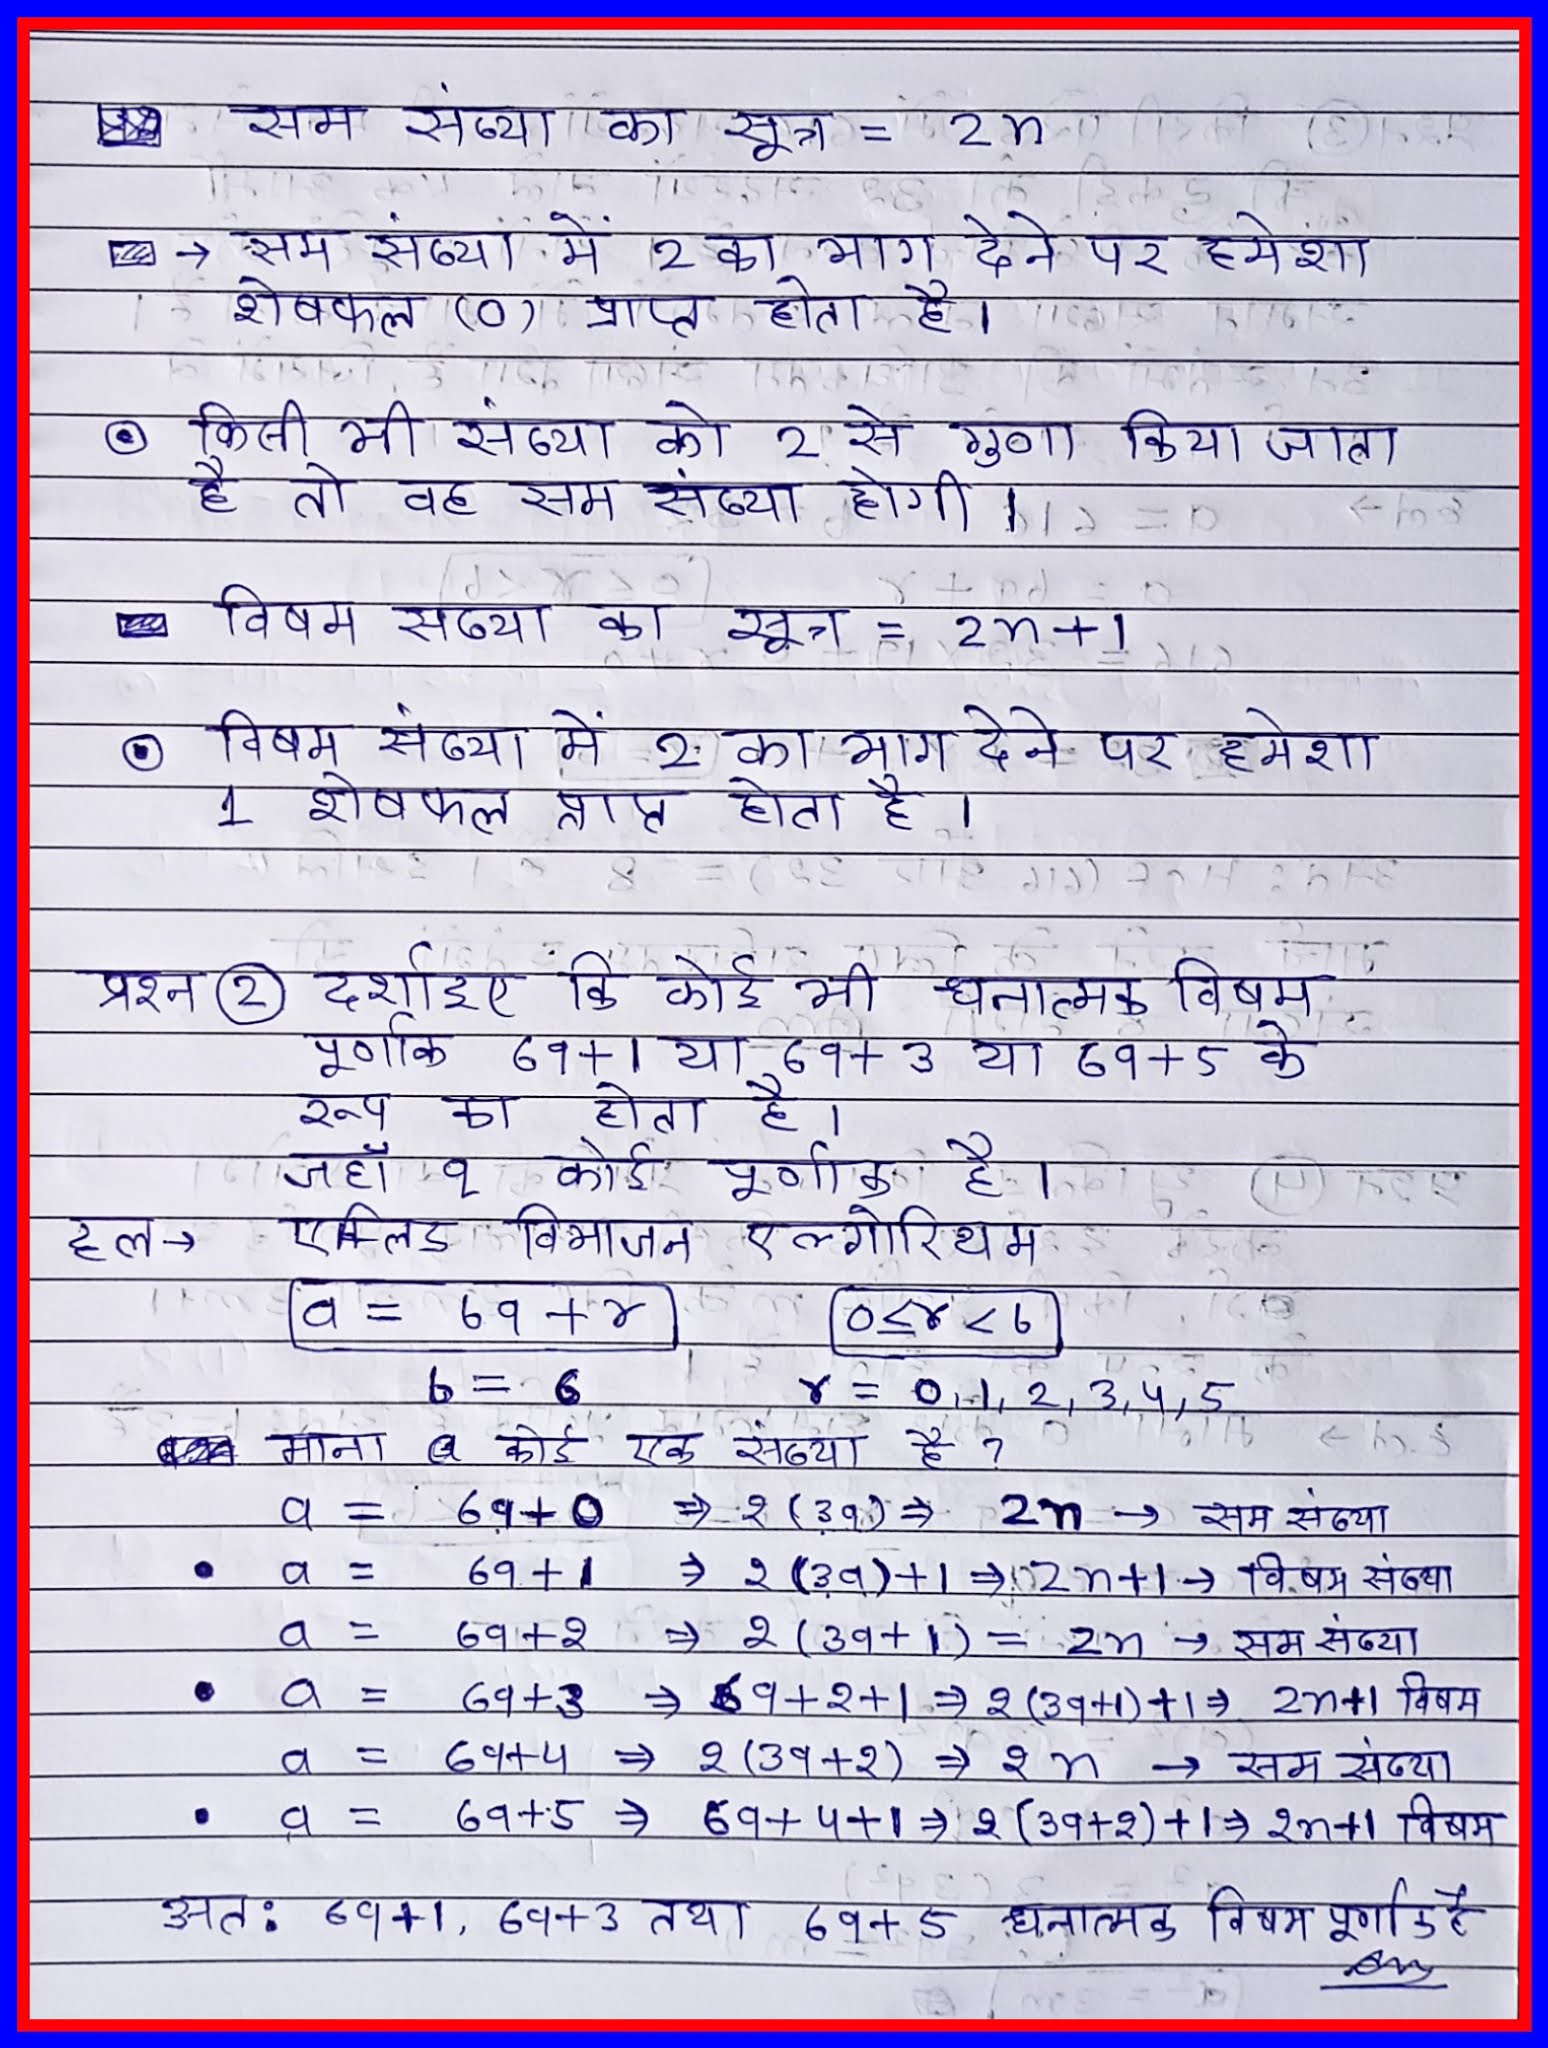 सम संख्या का सूत्र = 2n
→ सम संख्या में 2 का भाग देने पर हमेशा
शेषफल (0) प्राप्त होता है।
किसी भी संख्या को 2 से गुणा किया जाता
है तो वह सम संख्या होगी।
विषम संख्या का सूत्र = 2n+1
विषम संख्या में 2 का भाग देने पर हमेशा
1 शेषफल प्राप्त होता है।
प्रश्न 2 दर्शाइए कि कोई भी धनात्मक विषम
पूर्णांक 6q+1 या 6q+3 या 6q+5 के
रूप का होता है।
जहाँ q कोई पूर्णांक है।
हल→ एक्लिड विभाजन एल्गोरिथम
a = bq+r 0≤r<b
b = 6 r = 0,1,2,3,4,5
माना a कोई एक संख्या है?
a = 6q+0 ⇒ 2(3q) ⇒ 2n → सम संख्या
• a = 6q+1 ⇒ 2(3q)+1 ⇒ 2n+1 → विषम संख्या
a = 6q+2 ⇒ 2(3q+1) = 2n → सम संख्या
• a = 6q+3 ⇒ 6q+2+1 ⇒ 2(3q+1)+1 ⇒ 2n+1 विषम
a = 6q+4 ⇒ 2(3q+2) ⇒ 2n → सम संख्या
• a = 6q+5 ⇒ 6q+4+1 ⇒ 2(3q+2)+1 ⇒ 2n+1 विषम
अतः 6q+1, 6q+3 तथा 6q+5 धनात्मक विषम पूर्णांक है
Ans